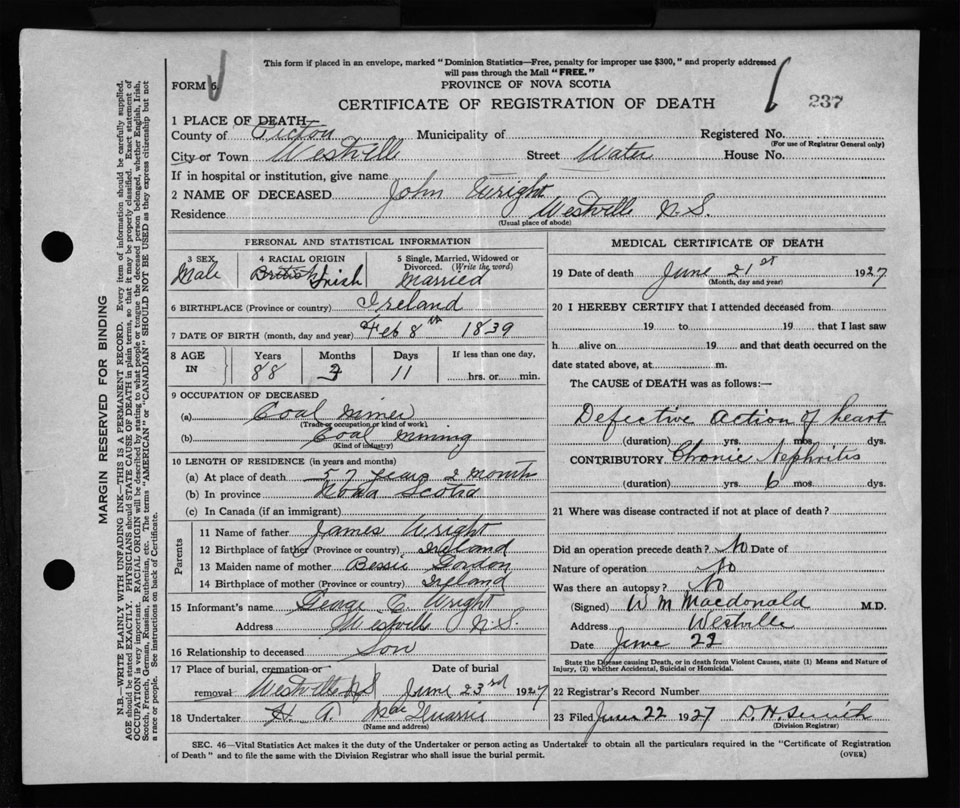 This form if placed in an envelope, marked "Dominion Statistics—Free, penalty for improper use $300," and properly addressed
will pass through the Mail "FREE."
FORM 6.
PROVINCE OF NOVA SCOTIA
CERTIFICATE OF REGISTRATION OF DEATH
237
1 PLACE OF DEATH
County of Pictou Municipality of Registered No.
(For use of Registrar General only)
City or Town Westville Street Water House No.
If in hospital or institution, give name
2 NAME OF DECEASED John Wright
Residence Westville N.S.
(Usual place of abode)
PERSONAL AND STATISTICAL INFORMATION
3 SEX
Male
4 RACIAL ORIGIN
British Irish
5 Single, Married, Widowed or
Divorced. (Write the word)
Married
6 BIRTHPLACE (Province or country) Ireland
7 DATE OF BIRTH (month, day and year) Feb 8th 1839
8 AGE IN
Years Months Days If less than one day,
88 11 hrs. or min.
9 OCCUPATION OF DECEASED
(a) Coal Miner
(Trade or occupation or kind of work)
(b) Coal Mining
(Kind of industry)
10 LENGTH OF RESIDENCE (in years and months)
(a) At place of death 57 years 2 months
(b) In province Nova Scotia
(c) In Canada (if an immigrant)
Parents
11 Name of father James Wright
12 Birthplace of father (Province or country) Ireland
13 Maiden name of mother Bessie Gordon
14 Birthplace of mother (Province or country) Ireland
15 Informant's name George C. Wright
Address Westville N.S.
16 Relationship to deceased Son
17 Place of burial, cremation or
removal Westville N S
Date of burial
June 23rd 1927
18 Undertaker H. A.
(Name and address)
MEDICAL CERTIFICATE OF DEATH
19 Date of death June 21st 1927
(Month, day and year)
20 I HEREBY CERTIFY that I attended deceased from
19 to 19 that I last saw
h alive on 19 and that death occurred on the
date stated above, at m.
The CAUSE of DEATH was as follows:—
Defective action of heart
(duration) yrs. mos. dys.
CONTRIBUTORY Chronic Nephritis
(duration) yrs. 6 mos. dys.
21 Where was disease contracted if not at place of death?
Did an operation precede death? No Date of
Nature of operation No
Was there an autopsy? No
(Signed) W M Macdonald M.D.
Address Westville
Date June 22
State the Disease causing Death, or in death from Violent Causes, state (1) Means and Nature of
Injury, (2) whether Accidental, Suicidal or Homicidal.
22 Registrar's Record Number
23 Filed June 22 1927 D. H.
(Division Registrar)
SEC. 46—Vital Statistics Act makes it the duty of the Undertaker or person acting as Undertaker to obtain all the particulars required in the "Certificate of Registration
of Death" and to file the same with the Division Registrar who shall issue the burial permit.
(OVER)
MARGIN RESERVED FOR BINDING
N.B.—WRITE PLAINLY WITH UNFADING INK—THIS IS A PERMANENT RECORD. Every item of information should be carefully supplied.
AGE should be stated EXACTLY. PHYSICIANS should STATE CAUSE OF DEATH in plain terms, so that it may be properly classified. Exact statement of
OCCUPATION is very important. RACIAL ORIGIN will be described by stating to what people or tongue the deceased person belonged, whether English, Irish,
Scotch, French, German, Russian, Ruthenian, etc. The terms "AMERICAN" or "CANADIAN" SHOULD NOT BE USED as they express citizenship but not
a race or people. See instructions on back of Certificate.